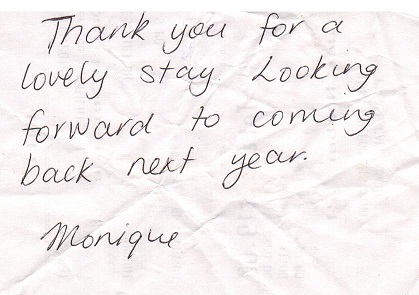 Thank you for a
lovely stay. Looking
forward to coming
back next year.
Monique